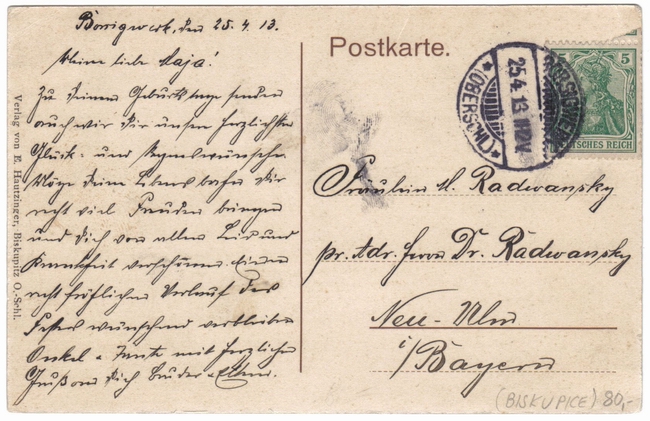 Borsigwerk, den 25.4.13.
Meine liebe Maja!
Zu Deinem Geburtstage senden
auch wir Dir unsere herzlichsten
Glück- und Segenswünsche.
Möge Deine Lebensbahn Dir
recht viel Freuden bringen
und Dich vor allem Leid und
Krankheit verschonen. Einen
recht fröhlichen Verlauf des
Festes wünschend verbleiben
Onkel u. Tante mit herzlichen
Gruß an Dich Bruder u. Eltern.
Verlag von E. Hautzinger, Biskupitz O.-Schl.
Postkarte.
BORSIGWERK
25.4.13
(OBERSCHL.)
5
DEUTSCHES REICH
Fräulein M. Radwansky
pr. Adr. Herrn Dr. Radwansky
Neu-Ulm
i/Bayern
(BISKUPICE) 80,-